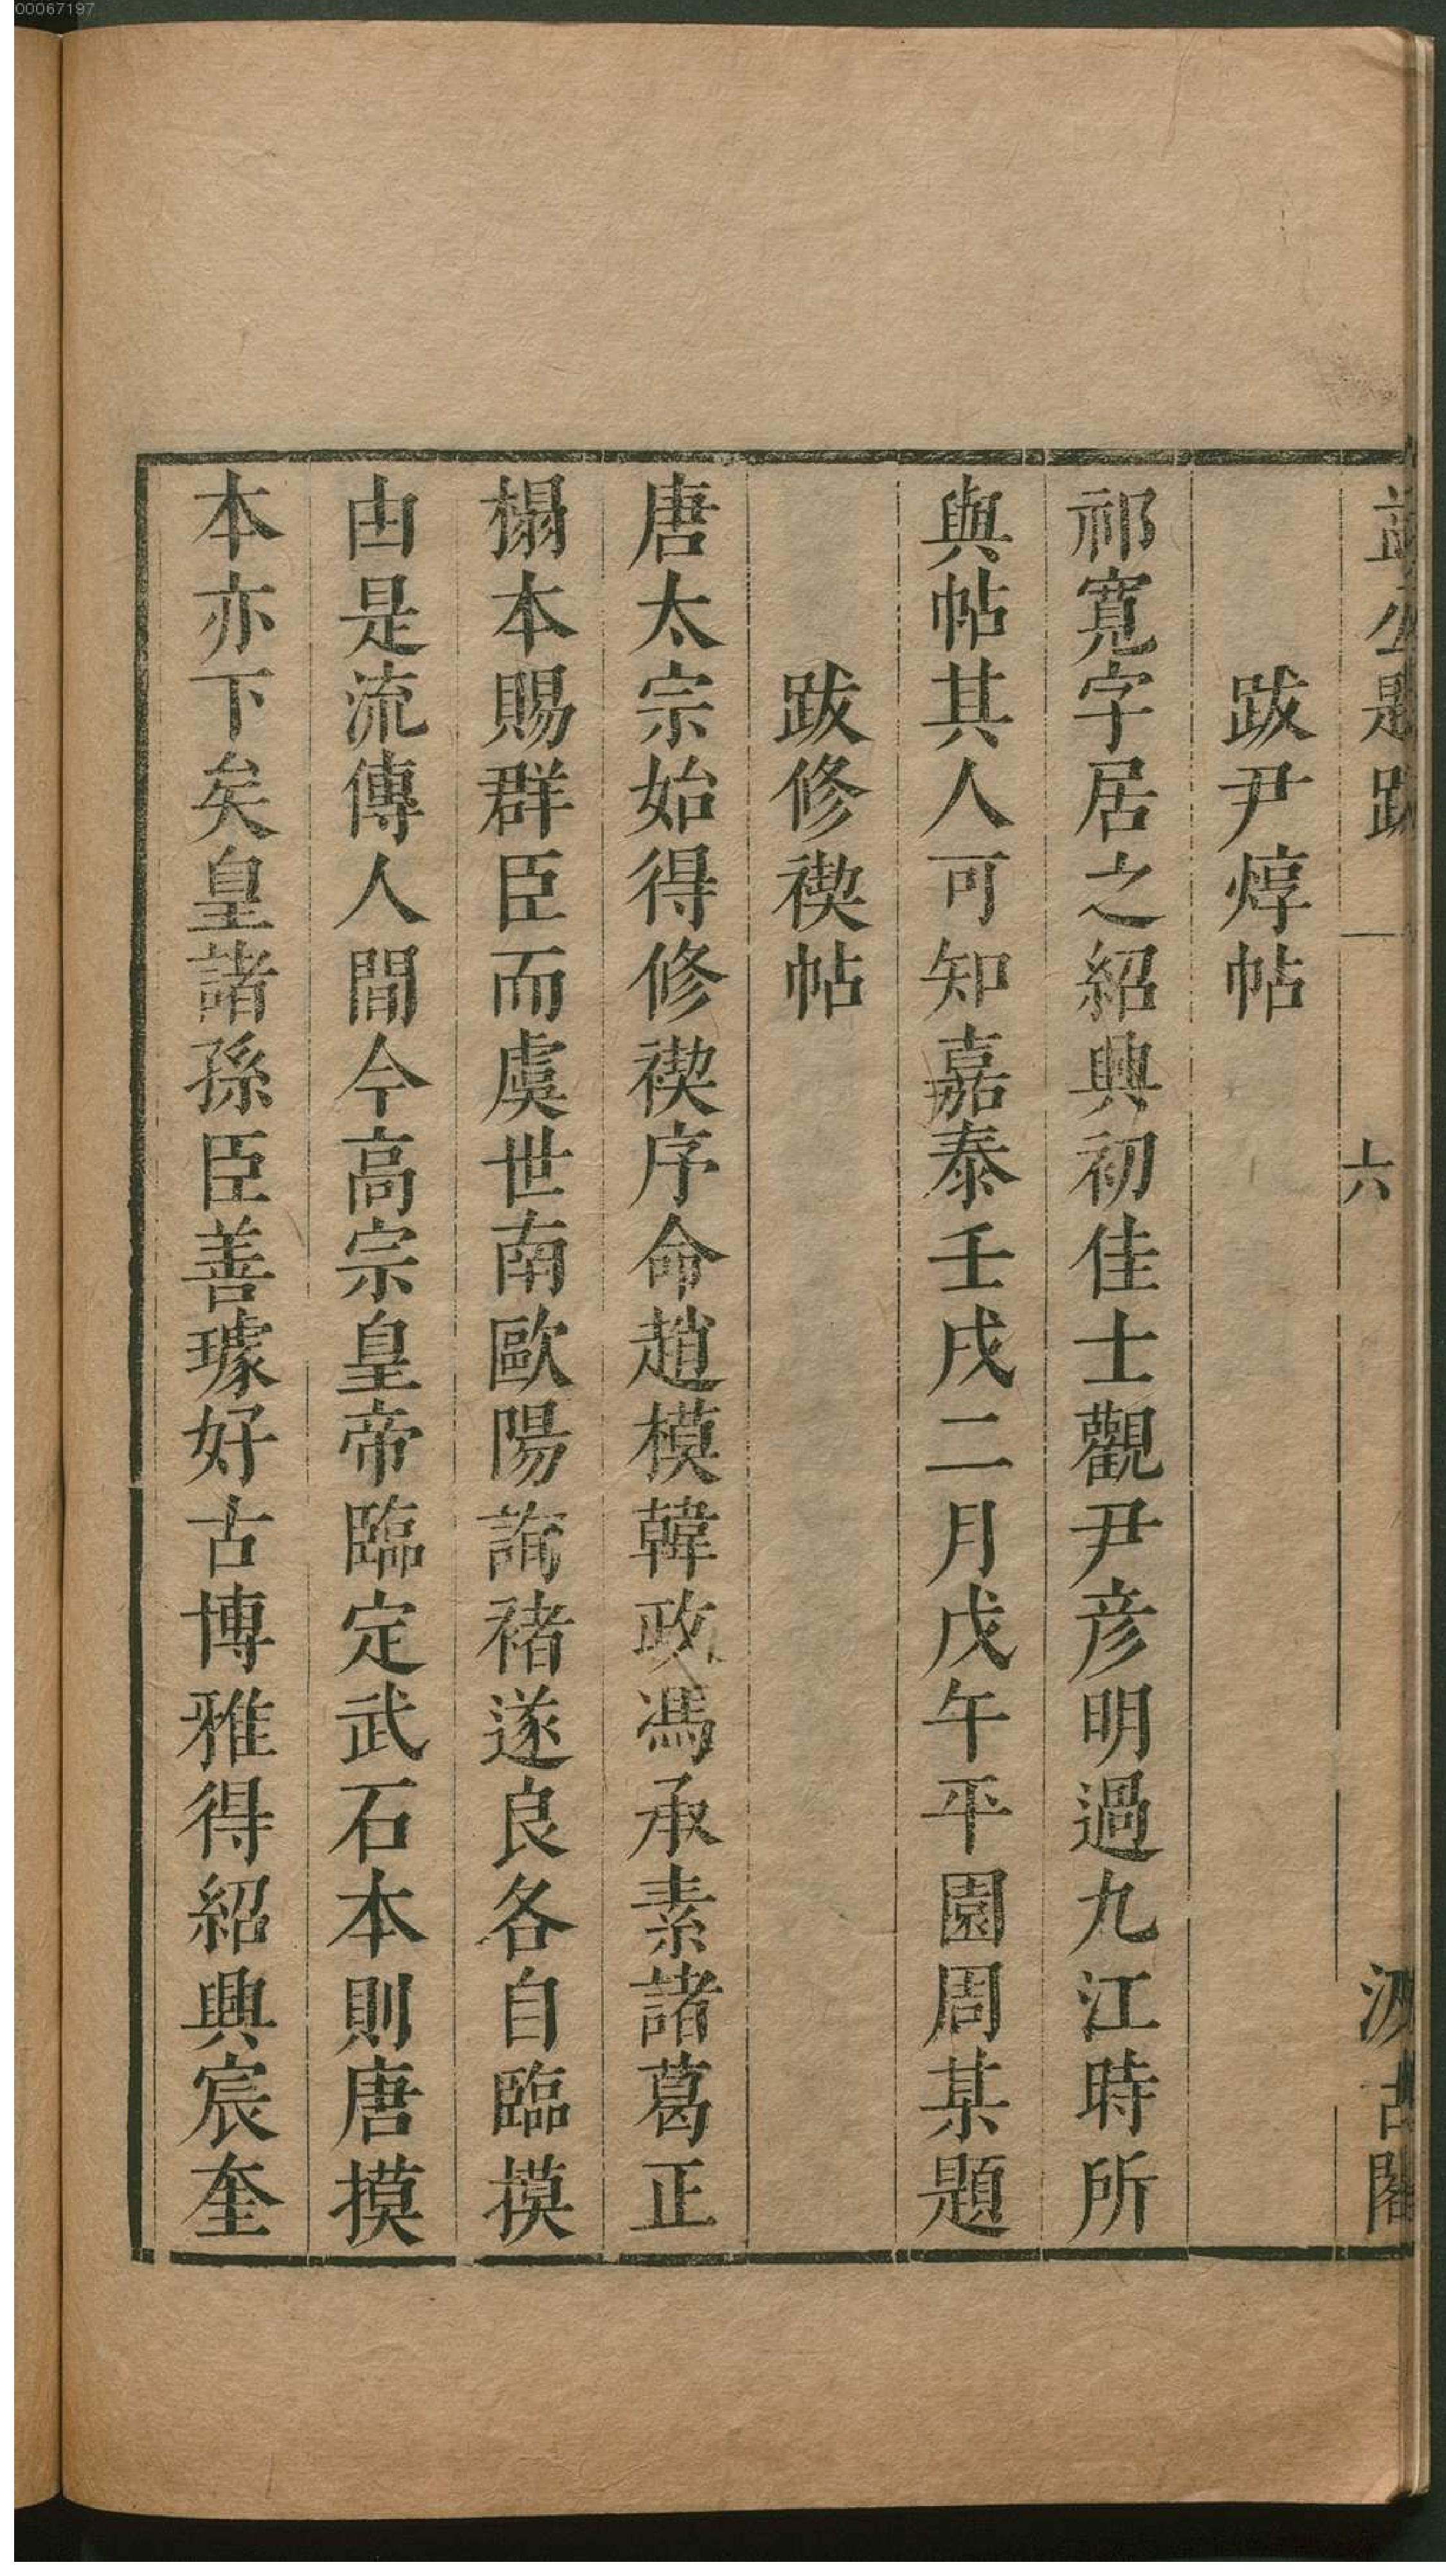 00067197
益公題跋 一 六 汲古閣
跋尹焞帖
祁寬字居之紹興初佳士觀尹彥明過九江時所
與帖其人可知嘉泰壬戌二月戊午平園周某題
跋修禊帖
唐太宗始得修禊序命趙模韓政馮承素諸葛正
搨本賜群臣而虞世南歐陽詢褚遂良各自臨摸
由是流傳人間今高宗皇帝臨定武石本則唐摸
本亦下矣皇諸孫臣善璩好古博雅得紹興宸奎